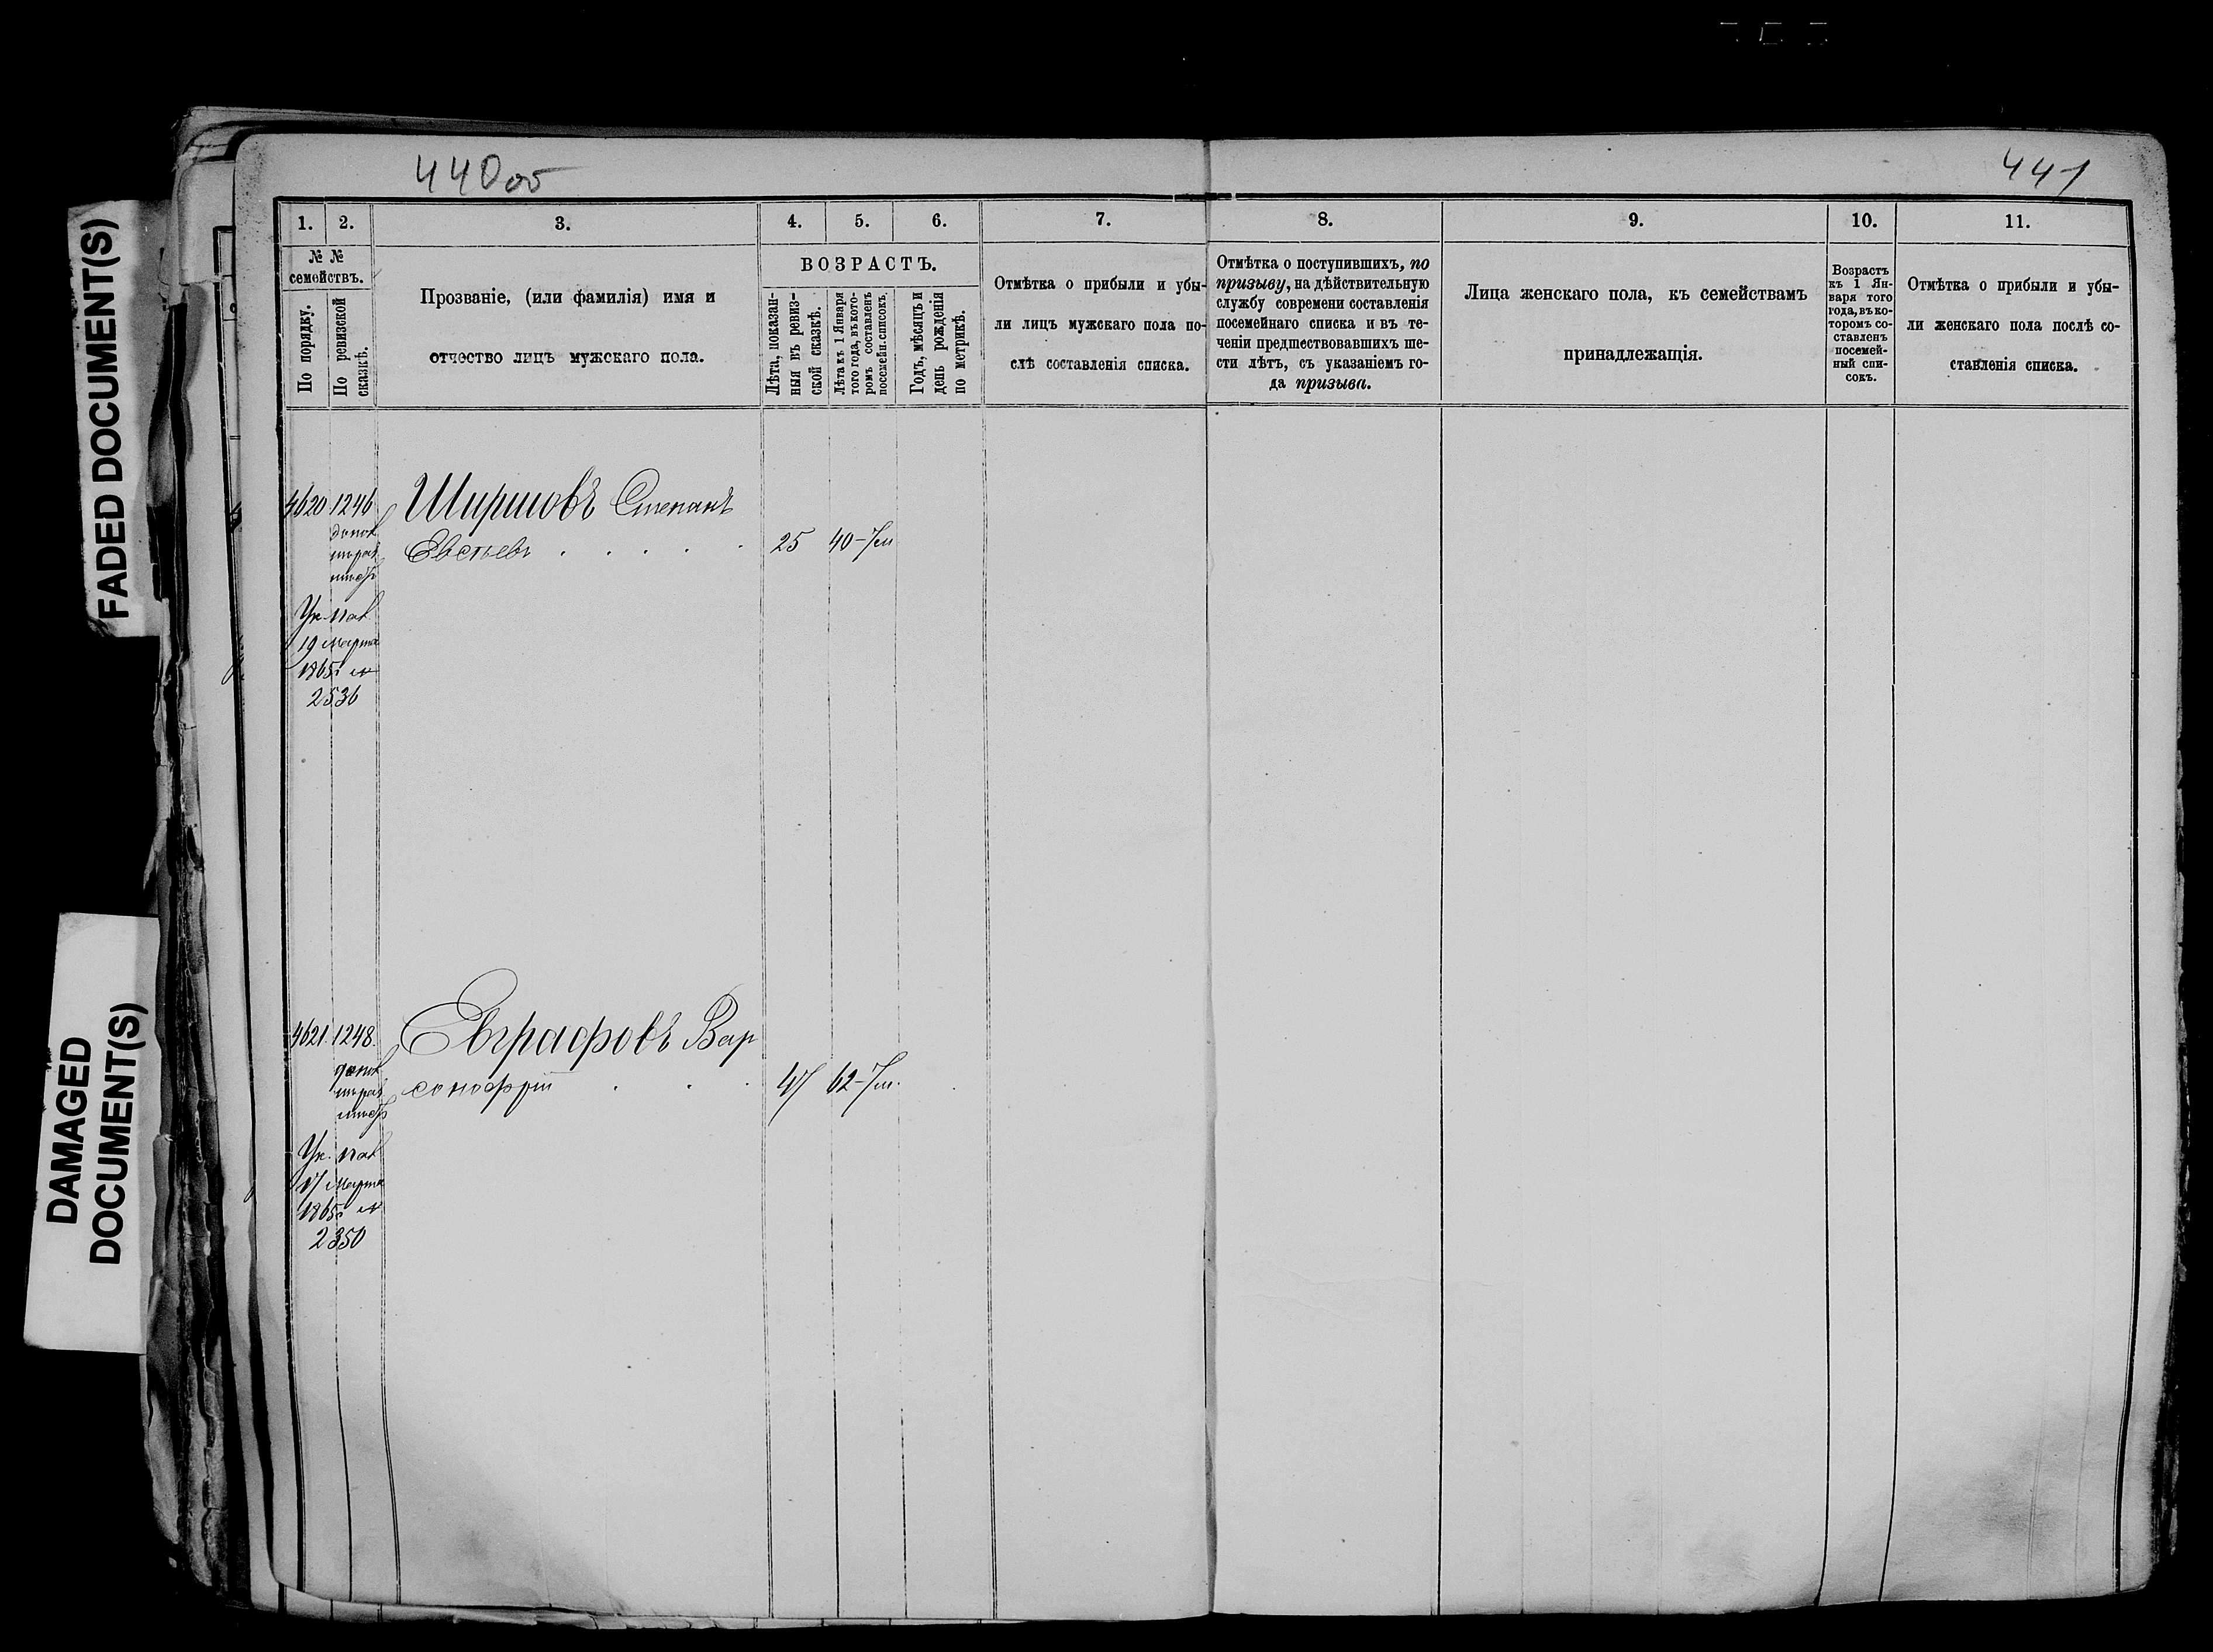 440 об
441
FADED DOCUMENT(S)
DAMAGED
DOCUMENT(S)
1. 2. 3. 4. 5. 6. 7. 8. 9. 10. 11.
№ №
семействъ.
По порядку.
По ревизской
сказкѣ.
Прозваніе, (или фамилія) имя и
отчество лицъ мужскаго пола.
ВОЗРАСТЪ.
Лѣта, показан-
ныя въ ревиз-
ской сказкѣ.
Лѣта къ 1 Января
того года, въ кото-
ромъ составленъ
посемейн. списокъ.
Годъ, мѣсяцъ и
день рожденія
по метрикѣ.
Отмѣтка о прибыли и убы-
ли лицъ мужскаго пола по-
слѣ составленія списка.
Отмѣтка о поступившихъ, по
призыву, на дѣйствительную
службу современи составленія
посемейнаго списка и въ те-
ченіи предшествовавшихъ ше-
сти лѣтъ, съ указаніемъ го-
да призыва.
Лица женскаго пола, къ семействамъ
принадлежащія.
Возрастъ
къ 1 Ян-
варя того
года, въ ко-
торомъ со-
ставленъ
посемей-
ный спи-
сокъ.
Отмѣтка о прибыли и убы-
ли женскаго пола послѣ со-
ставленія списка.
4620 1246 Ширшовъ Степанъ
Евстьевъ . . . . . 25 40
Ук.
19 Марта
1865 г №
2536
4621. 1248. Евграфовъ Вар
сонофій . . . 47 62
Ук.
17 Марта
1865 г №
2350